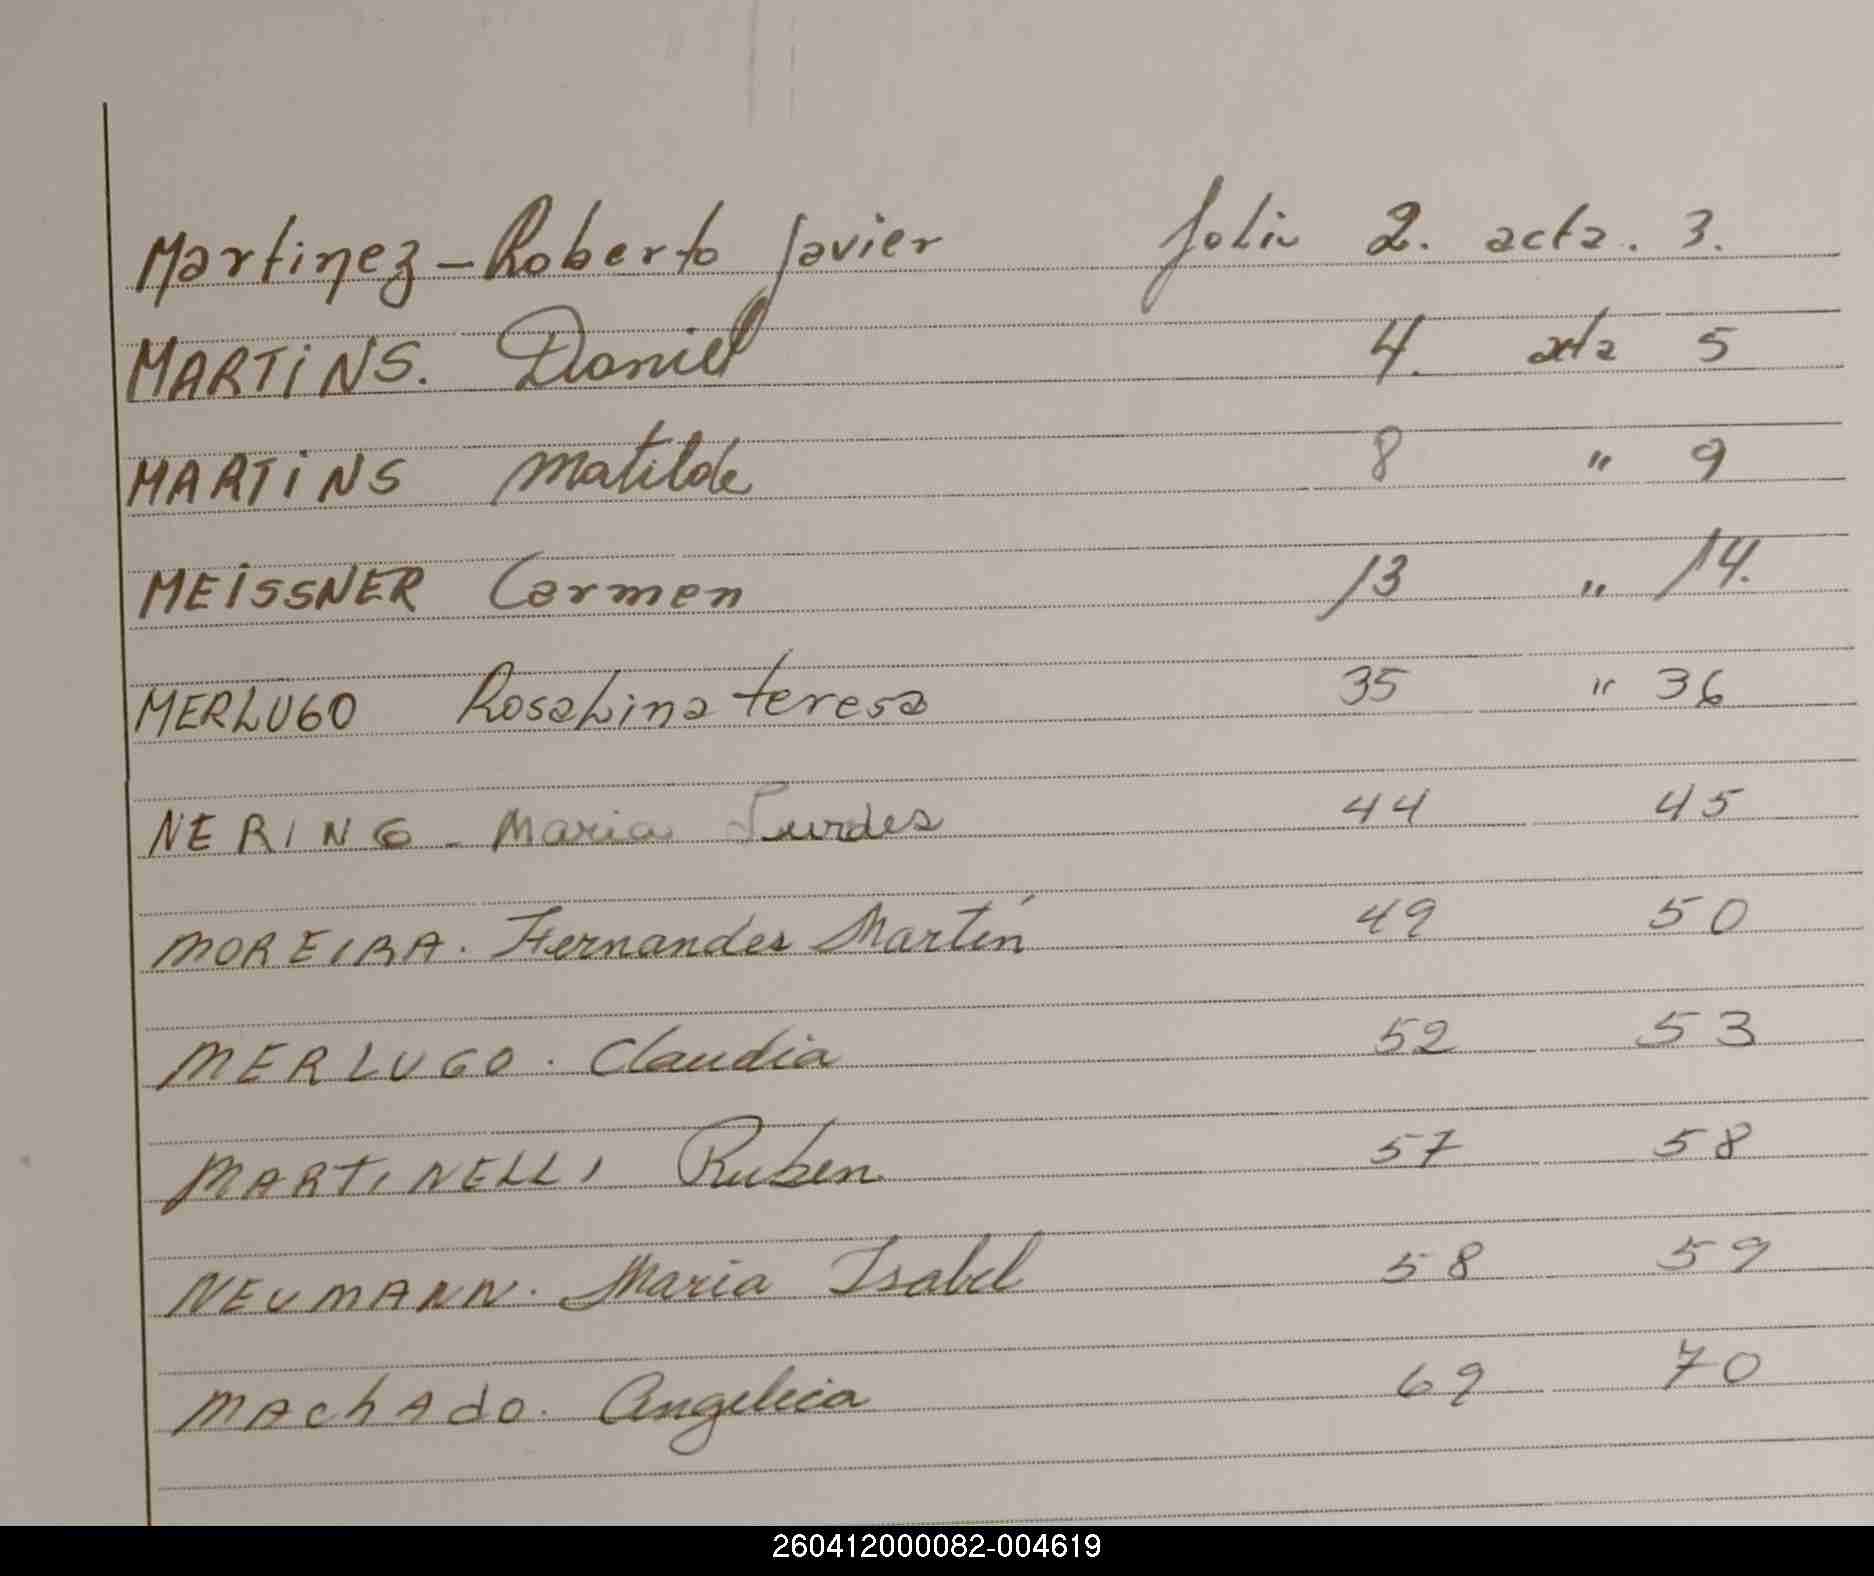 Martinez - Roberto Javier folio 2. acta. 3.
MARTiNS. Daniel 4. acta 5
MARTiNS Matilde 8 " 9
MEiSSNER Carmen 13 " 14.
MERLUGO Rosalina teresa 35 " 36
NERING - Maria Lurdes 44 45
MOREIRA. Fernandes Martín 49 50
MERLUGO. Claudia 52 53
MARTINELLI Ruben 57 58
NEUMANN. Maria Isabel 58 59
MAChAdo. Angelica 69 70
260412000082-004619